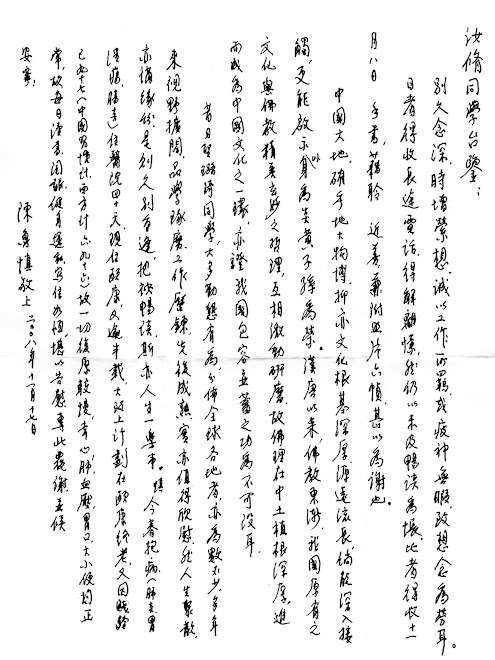 汝脩同學台鑒：
別久念深，時增縈想，誠以工作所羈，或疲神無暇，致想念為勞耳。
日者得收長途電話，得解翹悵，然仍以未及暢談為悵，比者得收十一
月八日　手書，藉聆　近善，兼附照片六幀，甚以為謝也。
中國大地，確乎地大物博，抑亦文化根基深厚，源遠流長，倘能深入接
觸，更能啟示以身為炎黃子孫為榮。漢唐以來佛教東漸，我國原有之
文化與佛教精義玄妙之哲理，互相激勵研磨，故佛理在中土植根深厚，進
而成為中國文化之一環，亦證我國包容並蓄之功為不可沒耳。
昔日聖璐琦同學，大多勤懇有為，分佈全球各地者，亦為數不少，多年
來視野擴闊，品學琢磨，工作歷鍊，先後成熟，實亦值得欣慰，然人生聚散，
亦惜緣份，是則久別喜逢，把歡暢談，斯亦人生一樂事。愚今春抱病(肺炎，胃
潰瘍，腸炎)住醫院四十天，現住療康又逾半載，大致上計劃在頤康終老，又因賤齡
已九十七(中國習慣計，西方計六九九六)，故一切復原較慢，幸心，肺，血壓，胃口，大小便均正
常，故每日讀書，閱報，健身運動，寫佳，亦頗堪以告慰，專此裁謝，並候
安善。
陳魯慎敬上　二〇〇八年十一月十七日